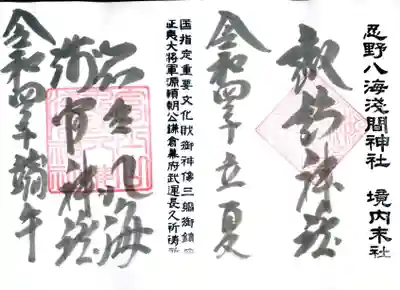 忍野八海淺間神社　境内末社
諏訪神社
令和四年立夏
国指定重要文化財御神像三躯御鎮座
征夷大将軍源頼朝公鎌倉幕府武運長久祈祷所
忍野八海
浅間神社
令和四年端午